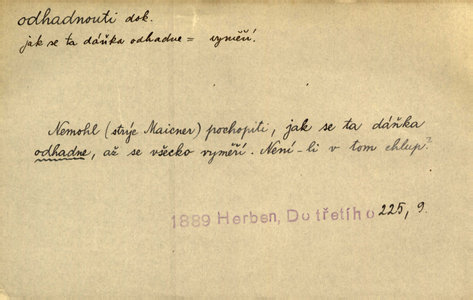 odhadnouti dok.
jak se ta dáňka odhadne = vyměří!
Nemohl (strýc Maicner) pochopiti, jak se ta dáňka
odhadne, až se všecko vyměří. Není-li v tom chlup?
1889 Herben, Do třetího 225, 9.